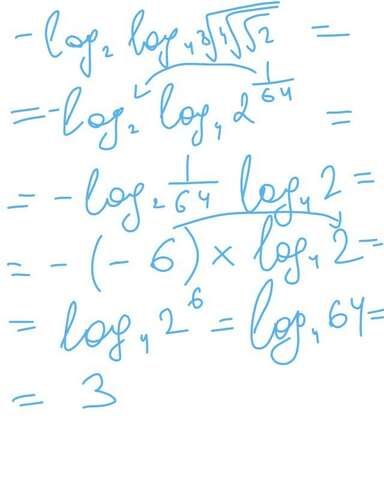 -log₂ log₄ ∛(∜(√2)) =
= -log₂ log₄ 2^(1/64) =
= -log₂ 1/64 log₄ 2 =
= -(-6) × log₄ 2 =
= log₄ 2⁶ = log₄ 64 =
= 3